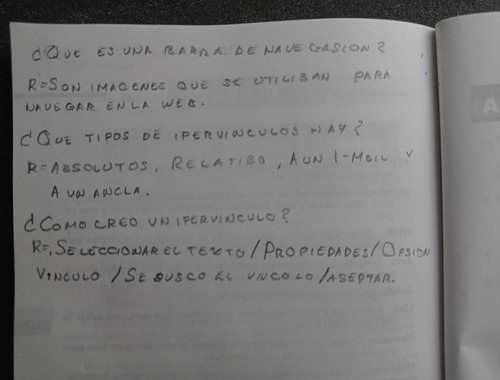 ¿QUE ES UNA BARRA DE NAVEGASION?
R=SON IMAGENES QUE SE UTILISAN PARA
NAVEGAR EN LA WEB.
¿QUE TIPOS DE IPERVINCULOS HAY?
R=ABSOLUTOS, RELATIBO, A UN I-MEIL Y
A UN ANCLA.
¿COMO CREO UN IPERVINCULO?
R=.SELECCIONAR EL TEXTO/PROPIEDADES/OPSION
VINCULO/SE BUSCO EL VINCOLO/ASEPTAR.